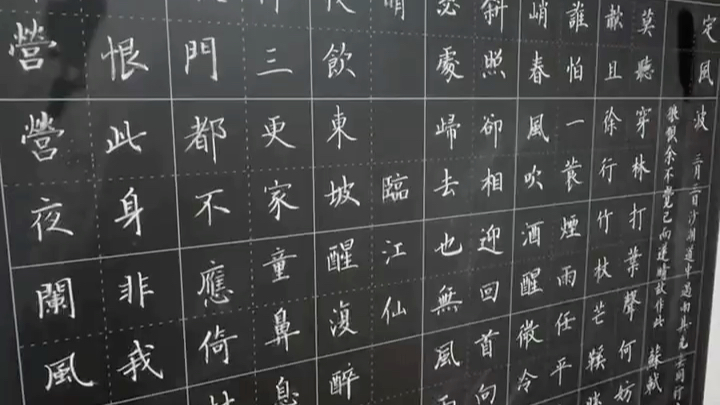 定風波 三月三日沙湖道中遇雨具先去同行
狼狽余不覺已而遂晴故作此 蘇軾
莫聽穿林打葉聲何妨
歗且徐行竹杖芒鞵
誰怕一蓑煙雨任平
峭春風吹酒醒微冷
斜照卻相迎回首向
處歸去也無風雨
晴
臨江仙
飲東坡醒復醉
三更家童鼻息
門都不應倚
恨此身非我
營營夜闌風